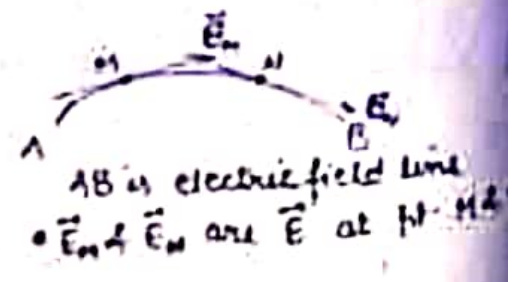 M E⃗ₘ N
A B E⃗ₙ
AB is electric field line
• E⃗ₘ & E⃗ₙ are E⃗ at pt. M &